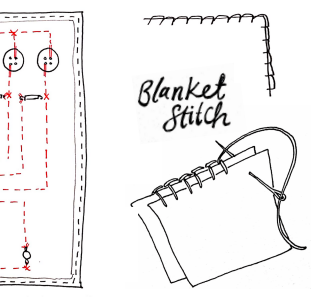 Blanket
Stitch